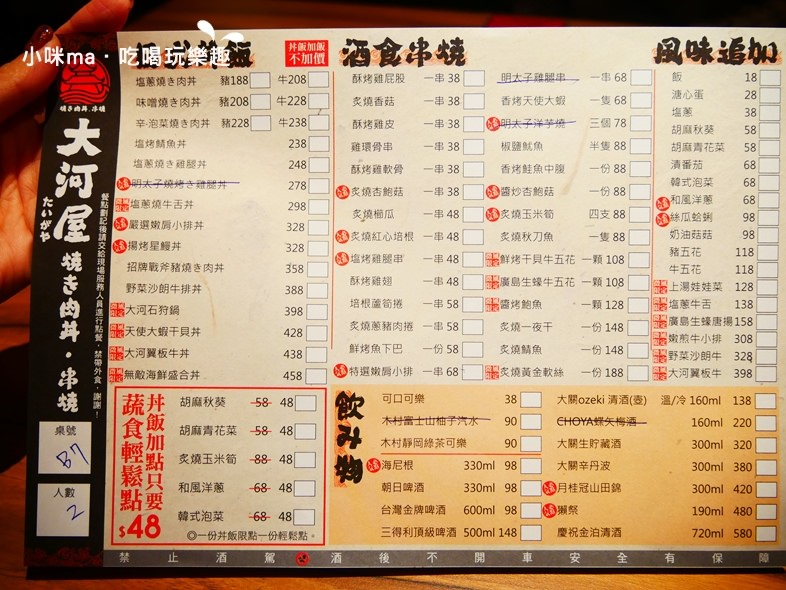 小咪ma·吃喝玩樂趣
丼飯加飯
不加價
塩蔥燒き肉丼 豬188 牛208
味噌燒き肉丼 豬208 牛228
辛·泡菜燒き肉丼 豬228 牛238
塩烤鯖魚丼 238
塩蔥燒き雞腿丼 248
明太子燒烤き雞腿丼 278
塩蔥燒牛舌丼 298
嚴選嫩肩小排丼 328
揚烤星鰻丼 328
招牌戰斧豬燒き肉丼 358
野菜沙朗牛排丼 388
大河石狩鍋 398
天使大蝦干貝丼 428
大河翼板牛丼 438
無敵海鮮盛合丼 458
酒食串燒
酥烤雞屁股 一串 38
炙燒香菇 一串 38
酥烤雞皮 一串 38
雞環骨串 一串 38
酥烤雞軟骨 一串 38
炙燒杏鮑菇 一串 38
炙燒櫛瓜 一串 48
炙燒紅心培根 一串 48
塩烤雞腿串 一串 48
酥烤雞翅 一串 48
培根蘆筍捲 一串 58
炙燒蔥豬肉捲 一串 58
鮮烤魚下巴 一份 58
特選嫩肩小排 一串 68
明太子雞腿串 一串 68
香烤天使大蝦 一隻 68
明太子洋芋燒 三個 78
椒鹽魷魚 半隻 88
香烤鮭魚中腹 一份 88
醬炒杏鮑菇 一份 88
炙燒玉米筍 四支 88
炙燒秋刀魚 一隻 88
鮮烤干貝牛五花 一顆 108
廣島生蠔牛五花 一顆 108
醬烤鮑魚 一顆 128
炙燒一夜干 一份 148
炙燒鯖魚 一份 148
炙燒黃金軟絲 一份 188
風味追加
飯 18
溏心蛋 28
塩蔥 38
胡麻秋葵 58
胡麻青花菜 58
漬番茄 68
韓式泡菜 68
和風洋蔥 68
絲瓜蛤蜊 98
奶油菇菇 98
豬五花 118
牛五花 118
上湯娃娃菜 128
塩蔥牛舌 138
廣島生蠔唐揚 158
嫩煎牛小排 308
野菜沙朗牛 328
大河翼板牛 398
大河屋
たいがや
燒き肉丼·串燒
餐點劃記後請交給現場服務人員進行點餐，禁帶外食，謝謝！
桌號
B7
人數
2
丼飯加點只要
蔬食輕鬆點
$48
胡麻秋葵 58 48
胡麻青花菜 58 48
炙燒玉米筍 88 48
和風洋蔥 68 48
韓式泡菜 68 48
◎一份丼飯限點一份輕鬆點。
飲み物
可口可樂 38
木村富士山柚子汽水 90
木村靜岡綠茶可樂 90
海尼根 330ml 98
朝日啤酒 330ml 98
台灣金牌啤酒 600ml 98
三得利頂級啤酒 500ml 148
大關ozeki 清酒(壺) 溫/冷 160ml 138
CHOYA蝶矢梅酒 160ml 220
大關生貯藏酒 300ml 320
大關辛丹波 300ml 380
月桂冠山田錦 300ml 420
獺祭 190ml 480
慶祝金泊清酒 720ml 580
禁止酒駕 酒後不開車安全有保障